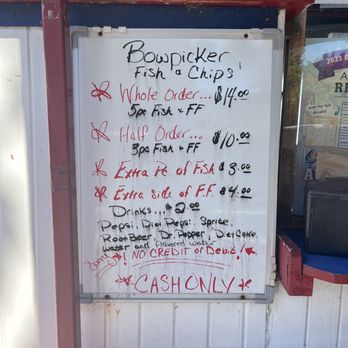 Bowpicker
Fish & Chips
Whole Order... $14.00
5pc Fish & FF
Half Order... $10.00
3pc Fish & FF
Extra Pc. of Fish $3.00
Extra Side of F.F. $4.00
Drinks... $2.00
Pepsi, Diet Pepsi, Sprite,
Root Beer, Dr. Pepper, Diet Coke,
Water and flavored water
Sorry! NO CREDIT or Debit!
CASH ONLY
2023